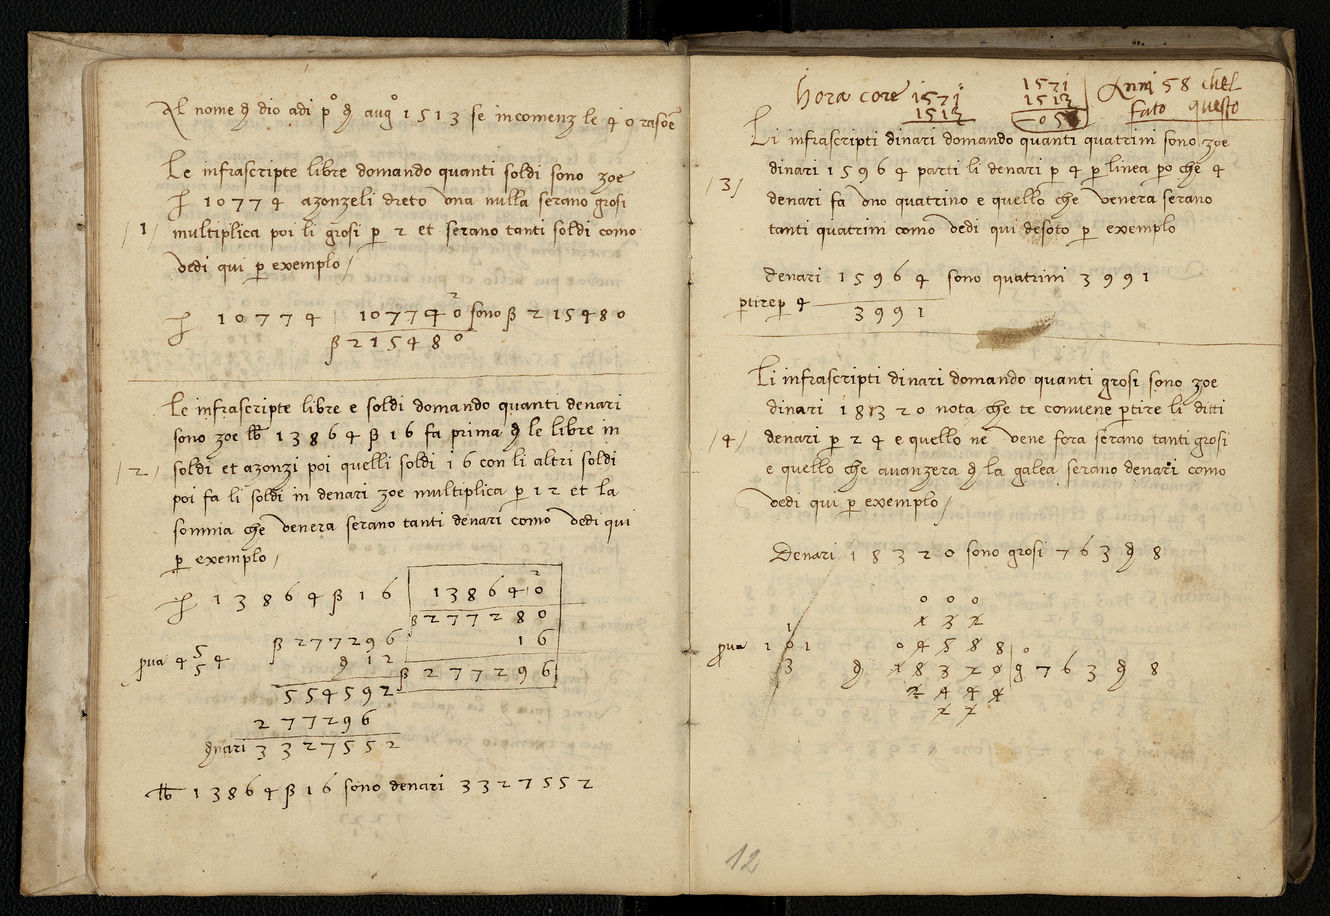 Al nome đ dio adi pº đ augº 1513 se incomenz le 40 rasoē
Le infrascripte libre domando quanti soldi sono zoe
10774 azonzeli dreto una nulla serano grosi
/ 1 / multiplica poi li grosi p 2 et serano tanti soldi como
vedi qui p exemplo /
10774 107740 sono ß 215480
2
ß 215480
Le infrascripte libre e soldi domando quanti denari
sono zoe lb 13864 ß 16 fa prima đ le libre in
/ 2 / soldi et azonzi poi quelli soldi 16 con li altri soldi
poi fa li soldi in denari zoe multiplica p 12 et la
somma che venera serano tanti denari como vedi qui
p exemplo /
13864 ß 16 138640
2
ß 277280
ß 277296 16
pua 4 5 5 4 đ 12 ß 277296
554592
277296
đnari 3327552
lb 13864 ß 16 sono denari 3327552
hora core 1571 1571 Anni 58 chel
1513 1513 fato questo
058
Li infrascripti dinari domando quanti quatrini sono zoe
dinari 15964 parti li denari p 4 p linea po che 4
/ 3 / denari fa uno quatrino e quello che venera serano
tanti quatrini como vedi qui desoto p exemplo
denari 15964 sono quatrini 3991
ptire p 4
3991
Li infrascripti dinari domando quanti grosi sono zoe
dinari 18320 nota che te convene ptire li ditti
/ 4 / denari p 24 e quello ne vene fora serano tanti grosi
e quello che avanzera đ la galea serano denari como
vedi qui p exemplo /
Denari 18320 sono grosi 763 đ 8
000
1 3 2
pua 1 0 1 04588 0
1 3
đ 18320 g 763 đ 8
2444
22
12